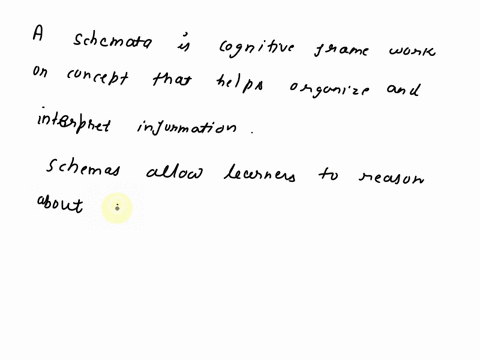 A schemata is cognitive frame work
on concept that helps organize and
interphet information.
schemas allow learners to reason
about